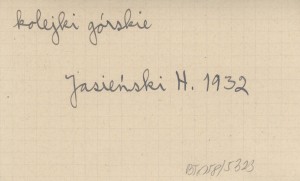 kolejki górskie
Jasieński H. 1932